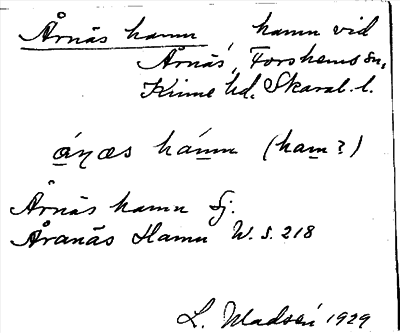 Årnäs hamn, hamn vid
Årnäs, Forshems sn,
Kinne hd. Skarab. l.
hamn (ham?)
Årnäs hamn Sj.
Åranäs Hamn W. S. 218
L. Madsén 1929